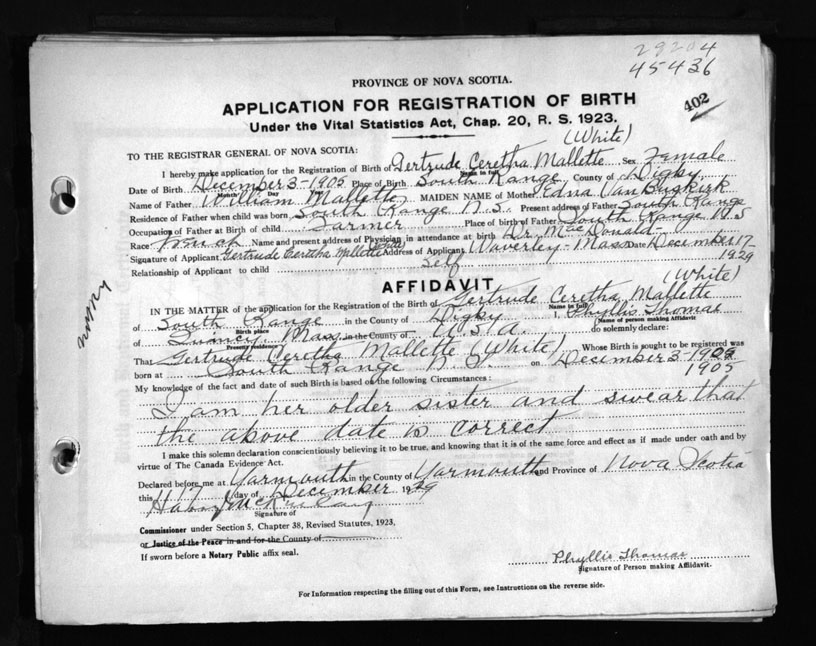 29204
45436
PROVINCE OF NOVA SCOTIA.
402
APPLICATION FOR REGISTRATION OF BIRTH
Under the Vital Statistics Act, Chap. 20, R. S. 1923.
(White)
TO THE REGISTRAR GENERAL OF NOVA SCOTIA:
I hereby make application for the Registration of Birth of Gertrude Ceretha Mallette Sex Female
Name in full
Date of Birth December 3-1905 Place of Birth South Range County of Digby
Month Day Year
Name of Father William Mallette MAIDEN NAME of Mother Edna VanBuskirk
Residence of Father when child was born South Range N.S. Present address of Father South Range
Occupation of Father at Birth of child Farmer Place of birth of Father South Range N.S
Race French Name and present address of Physician in attendance at birth Dr. MacDonald
Signature of Applicant Gertrude Ceretha Mallette (White) Address of Applicant Waverley-Mass Date December 17-
1929
Relationship of Applicant to child Self
AFFIDAVIT
(White)
IN THE MATTER of the application for the Registration of the Birth of Gertrude Ceretha Mallette
Name in full
of South Range in the County of Digby I, Phyllis Thomas
Birth place Name of person making Affidavit
of Quincy Mass in the County of U.S.A. do solemnly declare:
Present residence
That Gertrude Ceretha Mallette (White) Whose Birth is sought to be registered was
born at South Range N.S. on December 3-1905
1905
My knowledge of the fact and date of such Birth is based on the following Circumstances:
I am her older sister and swear that
the above date is correct
I make this solemn declaration conscientiously believing it to be true, and knowing that it is of the same force and effect as if made under oath and by
virtue of The Canada Evidence Act.
Declared before me at Yarmouth in the County of Yarmouth and Province of Nova Scotia
this 17 day of December 1929
Signature of
Commissioner under Section 5, Chapter 38, Revised Statutes, 1923,
or Justice of the Peace in and for the County of
If sworn before a Notary Public affix seal.
Phyllis Thomas
Signature of Person making Affidavit.
For Information respecting the filling out of this Form, see Instructions on the reverse side.